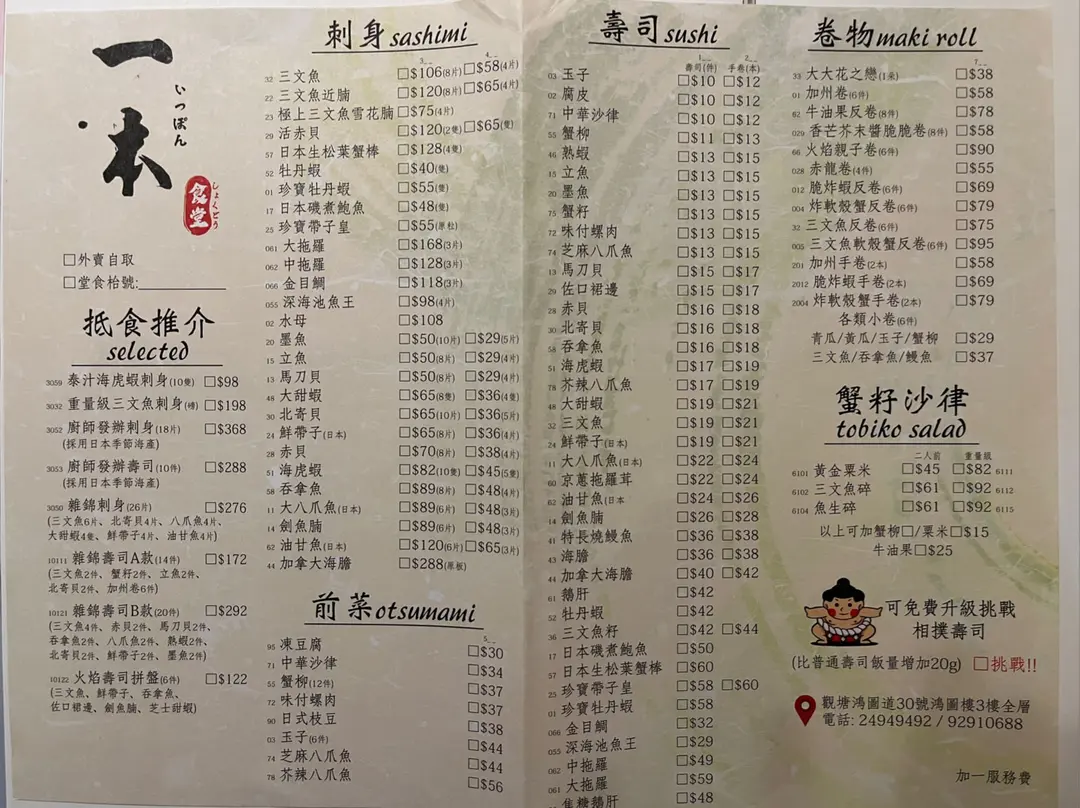 一本
いっぽん
食堂
しょくどう
□外賣自取
□堂食枱號:
抵食推介
selected
3059 泰汁海虎蝦刺身(10隻) □$98
3032 重量級三文魚刺身(磚) □$198
3052 廚師發辦刺身(18片) □$368
(採用日本季節海產)
3053 廚師發辦壽司(10件) □$288
(採用日本季節海產)
3050 雜錦刺身(26片) □$276
(三文魚6片、北寄貝4片、八爪魚4片、
大甜蝦4隻、鮮帶子4片、油甘魚4片)
10111 雜錦壽司A款(14件) □$172
(三文魚2件、蟹籽2件、立魚2件、
北寄貝2件、加州卷6件)
10121 雜錦壽司B款(20件) □$292
(三文魚4件、赤貝2件、馬刀貝2件、
吞拿魚2件、八爪魚2件、熟蝦2件、
北寄貝2件、鮮帶子2件、墨魚2件)
10122 火焰壽司拼盤(6件) □$122
(三文魚、鮮帶子、吞拿魚、
佐口裙邊、劍魚腩、芝士甜蝦)
刺身sashimi
3_ _ 4_ _
32 三文魚 □$106(8片) □$58(4片)
22 三文魚近腩 □$120(8片) □$65(4片)
23 極上三文魚雪花腩 □$75(4片)
29 活赤貝 □$120(2隻) □$65(隻)
57 日本生松葉蟹棒 □$128(4隻)
52 牡丹蝦 □$40(隻)
01 珍寶牡丹蝦 □$55(隻)
17 日本磯煮鮑魚 □$48(隻)
25 珍寶帶子皇 □$55(原粒)
061 大拖羅 □$168(3片)
062 中拖羅 □$128(3片)
066 金目鯛 □$118(3片)
055 深海池魚王 □$98(4片)
02 水母 □$108
20 墨魚 □$50(10片) □$29(5片)
15 立魚 □$50(8片) □$29(4片)
13 馬刀貝 □$50(8片) □$29(4片)
48 大甜蝦 □$65(8隻) □$36(4隻)
30 北寄貝 □$65(10片) □$36(5片)
24 鮮帶子(日本) □$65(8片) □$36(4片)
28 赤貝 □$70(8片) □$38(4片)
51 海虎蝦 □$82(10隻) □$45(5隻)
58 吞拿魚 □$89(8片) □$48(4片)
11 大八爪魚(日本) □$89(6片) □$48(3片)
14 劍魚腩 □$89(6片) □$48(3片)
62 油甘魚(日本) □$120(6片) □$65(3片)
44 加拿大海膽 □$288(原板)
前菜otsumami
5_ _
95 凍豆腐 □$30
71 中華沙律 □$34
55 蟹柳(12件) □$37
72 味付螺肉 □$37
90 日式枝豆 □$38
03 玉子(6件) □$44
74 芝麻八爪魚 □$44
78 芥辣八爪魚 □$56
壽司sushi
1_ _ 2_ _
壽司(件) 手卷(本)
03 玉子 □$10 □$12
02 腐皮 □$10 □$12
71 中華沙律 □$10 □$12
55 蟹柳 □$11 □$13
46 熟蝦 □$13 □$15
15 立魚 □$13 □$15
20 墨魚 □$13 □$15
75 蟹籽 □$13 □$15
72 味付螺肉 □$13 □$15
74 芝麻八爪魚 □$13 □$15
13 馬刀貝 □$15 □$17
29 佐口裙邊 □$15 □$17
28 赤貝 □$16 □$18
30 北寄貝 □$16 □$18
58 吞拿魚 □$16 □$18
51 海虎蝦 □$17 □$19
78 芥辣八爪魚 □$17 □$19
48 大甜蝦 □$19 □$21
32 三文魚 □$19 □$21
24 鮮帶子(日本) □$19 □$21
11 大八爪魚(日本) □$22 □$24
60 京蔥拖羅茸 □$22 □$24
62 油甘魚(日本 □$24 □$26
14 劍魚腩 □$26 □$28
41 特長燒鰻魚 □$36 □$38
43 海膽 □$36 □$38
44 加拿大海膽 □$40 □$42
61 鵝肝 □$42
52 牡丹蝦 □$42
36 三文魚籽 □$42 □$44
17 日本磯煮鮑魚 □$50
57 日本生松葉蟹棒 □$60
25 珍寶帶子皇 □$58 □$60
01 珍寶牡丹蝦 □$58
066 金目鯛 □$32
055 深海池魚王 □$29
062 中拖羅 □$49
061 大拖羅 □$59
焦糖鵝肝 □$48
卷物maki roll
7_ _
33 大大花之戀(1朵) □$38
01 加州卷(6件) □$58
62 牛油果反卷(8件) □$78
029 香芒芥末醬脆脆卷(8件) □$58
66 火焰親子卷(6件) □$90
028 赤龍卷(4件) □$55
012 脆炸蝦反卷(6件) □$69
004 炸軟殼蟹反卷(6件) □$79
32 三文魚反卷(6件) □$75
005 三文魚軟殼蟹反卷(6件) □$95
201 加州手卷(2本) □$58
2012 脆炸蝦手卷(2本) □$69
2004 炸軟殼蟹手卷(2本) □$79
各類小卷(6件)
青瓜/黃瓜/玉子/蟹柳 □$29
三文魚/吞拿魚/鰻魚 □$37
蟹籽沙律
tobiko salad
二人前 重量級
6101 黃金粟米 □$45 □$82 6111
6102 三文魚碎 □$61 □$92 6112
6104 魚生碎 □$61 □$92 6115
以上可加蟹柳□/粟米□$15
牛油果□$25
可免費升級挑戰
相撲壽司
(比普通壽司飯量增加20g) □挑戰!!
觀塘鴻圖道30號鴻圖樓3樓全層
電話: 24949492 / 92910688
加一服務費